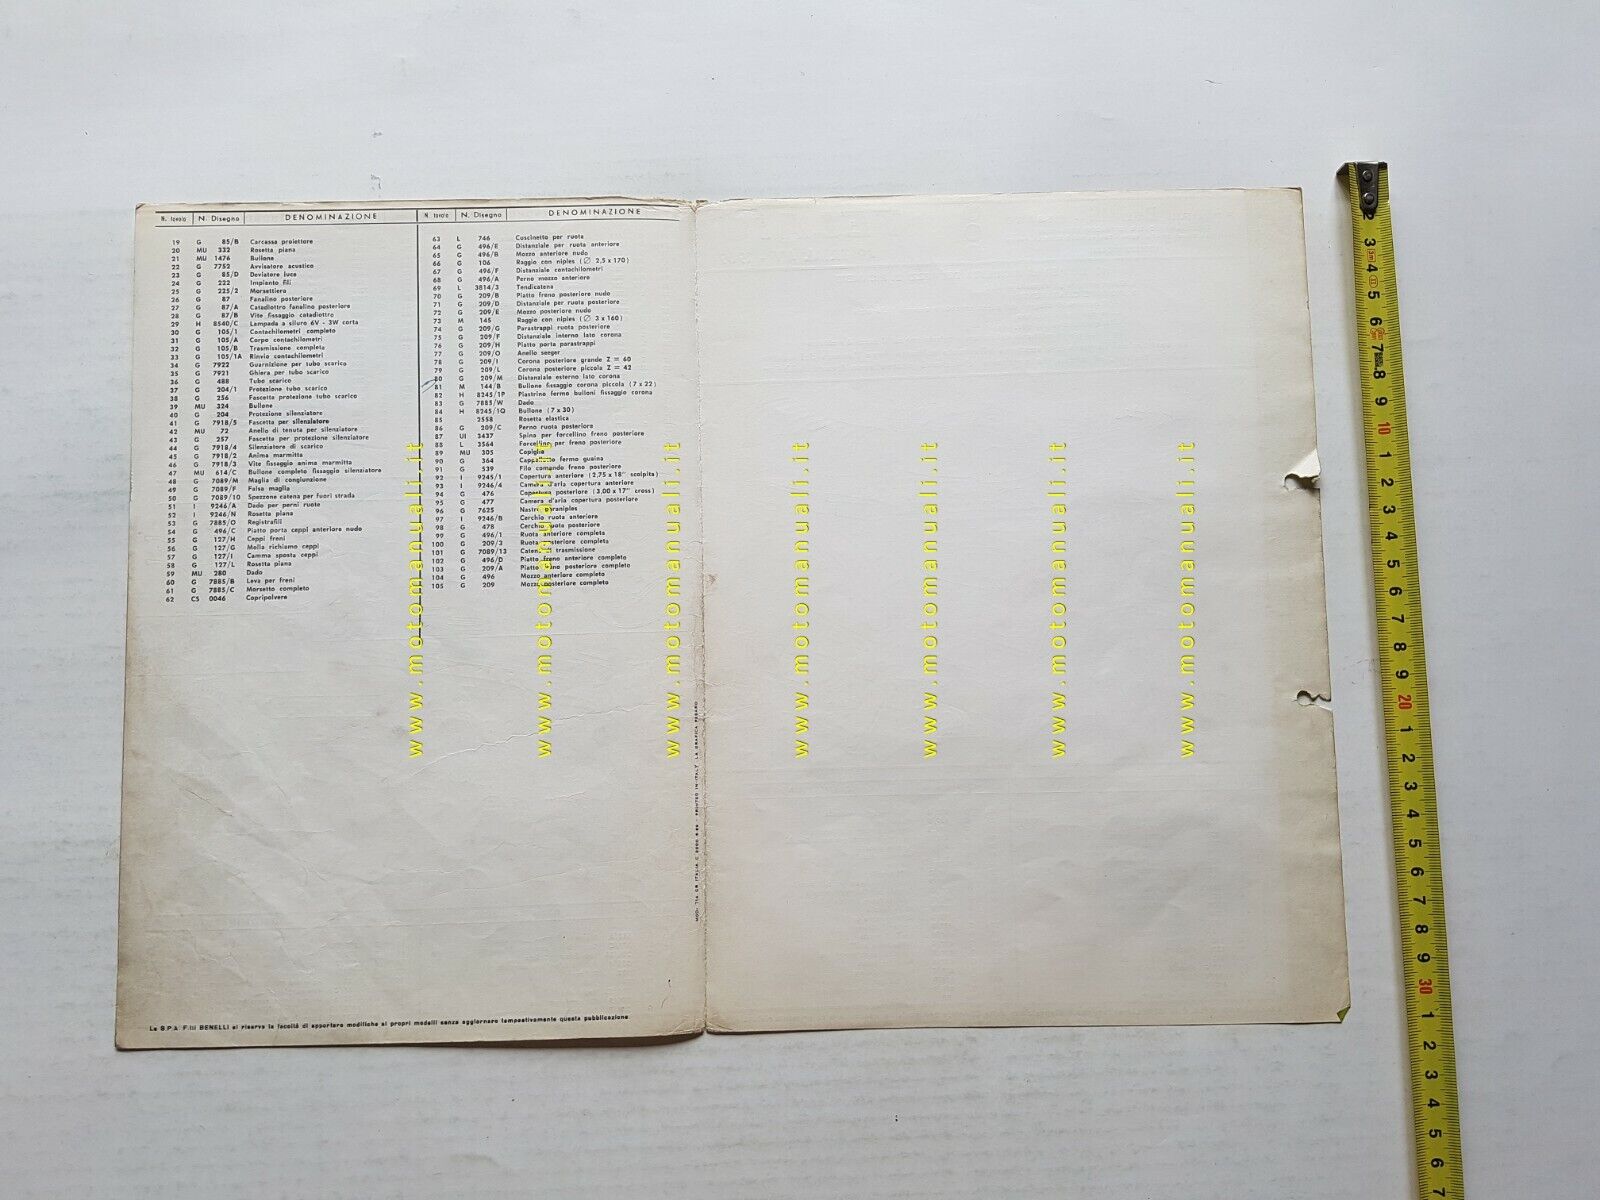 N. tavola N. Disegno DENOMINAZIONE
19 G 85/B Carcassa proiettore
20 MU 332 Rosetta piana
21 MU 1476 Bullone
22 G 7752 Avvisatore acustico
23 G 85/D Deviatore luce
24 G 222 Impianto fili
25 G 225/2 Morsettiera
26 G 87 Fanalino posteriore
27 G 87/A Catadiottro fanalino posteriore
28 G 87/B Vite fissaggio catadiottro
29 H 8540/C Lampada a siluro 6V - 3W corta
30 G 105/1 Contachilometri completo
31 G 105/A Corpo contachilometri
32 G 105/B Trasmissione completa
33 G 105/1A Rinvio contachilometri
34 G 7922 Guarnizione per tubo scarico
35 G 7921 Ghiera per tubo scarico
36 G 488 Tubo scarico
37 G 204/1 Protezione tubo scarico
38 G 256 Fascetta protezione tubo scarico
39 MU 324 Bullone
40 G 204 Protezione silenziatore
41 G 7918/5 Fascetta per silenziatore
42 MU 72 Anello di tenuta per silenziatore
43 G 257 Fascetta per protezione silenziatore
44 G 7918/4 Silenziatore di scarico
45 G 7918/2 Anima marmitta
46 G 7918/3 Vite fissaggio anima marmitta
47 MU 614/C Bullone completo fissaggio silenziatore
48 G 7089/M Maglia di congiunzione
49 G 7089/F Falsa maglia
50 G 7089/10 Spezzone catena per fuori strada
51 I 9246/A Dado per perni ruote
52 I 9246/N Rosetta piana
53 G 7885/O Registrafili
54 G 496/C Piatto porta ceppi anteriore nudo
55 G 127/H Ceppi freni
56 G 127/G Molla richiamo ceppi
57 G 127/I Camma sposta ceppi
58 G 127/L Rosetta piana
59 MU 280 Dado
60 G 7885/B Leva per freni
61 G 7885/C Morsetto completo
62 CS 0046 Copripolvere
N. tavola N. Disegno DENOMINAZIONE
63 L 746 Cuscinetto per ruota
64 G 496/E Distanziale per ruota anteriore
65 G 496/B Mozzo anteriore nudo
66 G 106 Raggio con niples (∅ 2,5 x 170)
67 G 496/F Distanziale centachilometri
68 G 496/A Perno mozzo anteriore
69 L 3814/3 Tendicatena
70 G 209/B Piatto freno posteriore nudo
71 G 209/D Distanziale per ruota posteriore
72 G 209/E Mozzo posteriore nudo
73 M 145 Raggio con niples (∅ 3 x 160)
74 G 209/G Parastrappi ruota posteriore
75 G 209/F Distanziale interno lato corona
76 G 209/H Piatto porta parastrappi
77 G 209/O Anello seeger
78 G 209/I Corona posteriore grande Z = 60
79 G 209/L Corona posteriore piccola Z = 42
80 G 209/M Distanziale esterno lato corona
81 M 144/B Bullone fissaggio corona piccola (7 x 22)
82 H 8245/1P Piastrino fermo bulloni fissaggio corona
83 G 7885/W Dado
84 H 8245/1Q Bullone (7 x 30)
85 2558 Rosetta elastica
86 G 209/C Perno ruota posteriore
87 UI 3437 Spina per forcellino freno posteriore
88 L 3564 Forcellino per freno posteriore
89 MU 305 Copiglia
90 G 364 Cappelletto fermo guaina
91 G 539 Filo comando freno posteriore
92 I 9245/1 Copertura anteriore (2,75 x 18" scolpita)
93 I 9246/4 Camera d'aria copertura anteriore
94 G 476 Copertura posteriore (3,00 x 17" cross)
95 G 477 Camera d'aria copertura posteriore
96 G 7625 Nastro paraniples
97 I 9246/B Cerchio ruota anteriore
98 G 478 Cerchio ruota posteriore
99 G 496/1 Ruota anteriore completa
100 G 209/3 Ruota posteriore completa
101 G 7089/13 Catena di trasmissione
102 G 496/D Piatto freno anteriore completo
103 G 209/A Piatto freno posteriore completo
104 G 496 Mozzo anteriore completo
105 G 209 Mozzo posteriore completo
La S.P.A. F.lli BENELLI si riserva la facoltà di apportare modifiche ai propri modelli senza aggiornare tempestivamente questa pubblicazione.
PRINTED IN ITALY LA GRAFICA PESARO
www.motomanuali.it
www.motomanuali.it
www.motomanuali.it
www.motomanuali.it
www.motomanuali.it
www.motomanuali.it
www.motomanuali.it
2 3 4 5 6 7 8 9 10 1 2 3 4 5 6 7 8 9 20 1 2 3 4 5 6 7 8 9 30 1 2 3 4 5 6 7